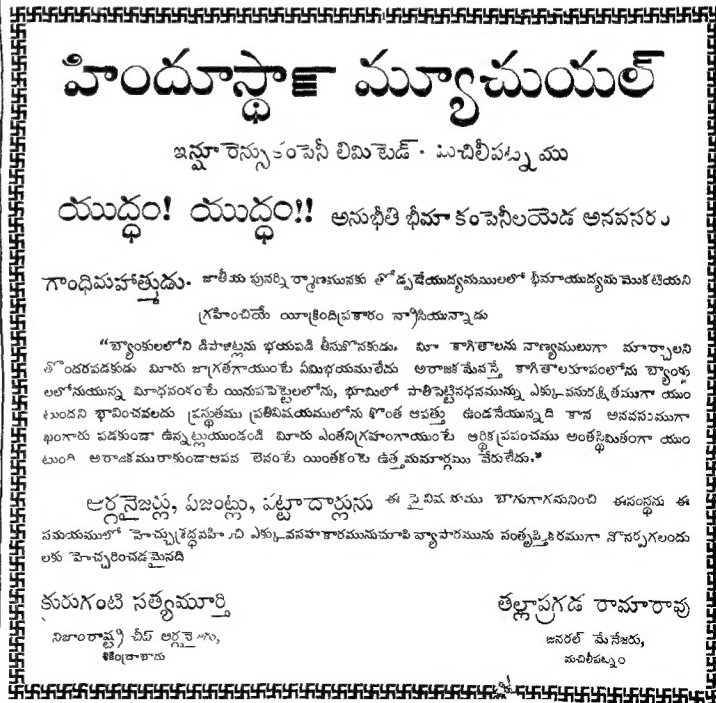 హిందూస్థాన్ మ్యూచుయల్
ఇన్షూరెన్సుకంపెనీ లిమిటెడ్ - మచిలీపట్నము
యుద్ధం! యుద్ధం!! అనుభీతి భీమా కంపెనీలయెడ అనవసరం
గాంధిమహాత్ముడు- జాతీయ పునర్నిర్మాణమునకు తోడ్పడేయుద్యమములలో భీమాయుద్యమమొకటియని
గ్రహించియే యీక్రిందిప్రకారం వ్రాసియున్నాడు
"బ్యాంకులలోని డిపాజిట్లను భయపడి తీసుకొనకుడు. మీ కాగితాలను నాణ్యములుగా మార్చాలని
తొందరపడకుడు మీరు జాగ్రతగాయుంటే ఏమిభయములేదు అరాజకమేవస్తే కాగితాలరూపంలోను బ్యాంకు
లలోనుయున్న మీధనంకంటే యినుపపెట్టెలలోను, భూమిలో పాతిపెట్టినధనమున్ను ఎక్కువసురక్షితముగా యుం
టుందని భావించవలదు ప్రస్తుతము ప్రతివిషయములోను కొంత ఆపత్తు ఉండనేయున్నది కాన అనవసరముగా
ఖంగారు పడకుండా ఉన్నట్లుయుండండి మీరు ఎంతనిగ్రహంగాయుంటే ఆర్థికప్రపంచము అంతస్థిమితంగా యుం
టుంది అరాజకమురాకుండాఆపవలెనంటే యింతకంటే ఉత్తమమార్గము వేరులేదు."
ఆర్గనైజర్లు, ఏజంట్లు, పట్టాదార్లును ఈ పైవిషయము బాగుగాగమనించి ఈసంస్థను ఈ
సమయములో హెచ్చుశ్రద్ధవహించి ఎక్కువసహకారమునుచూపి వ్యాపారమును సంతృప్తికరముగా నొనర్పగలందు
లకు హెచ్చరించడమైనది
కురుగంటి సత్యమూర్తి
తల్లాప్రగడ రామారావు
నిజాంరాష్ట్ర చీప్ ఆర్గనైజరు,
జనరల్ మేనేజరు,
సికింద్రాబాదు
మచిలీపట్నం